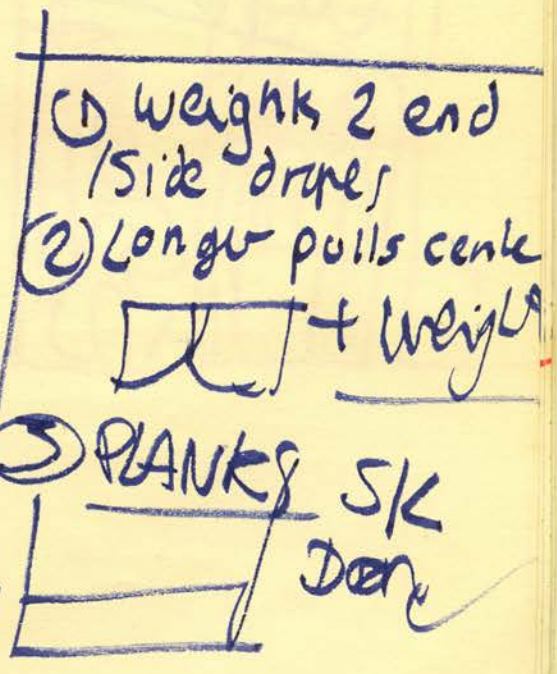 ① Weights 2 end
/Side drapes
② Longer pulls cente
+ Weight
③ PLANKS S/L
Door